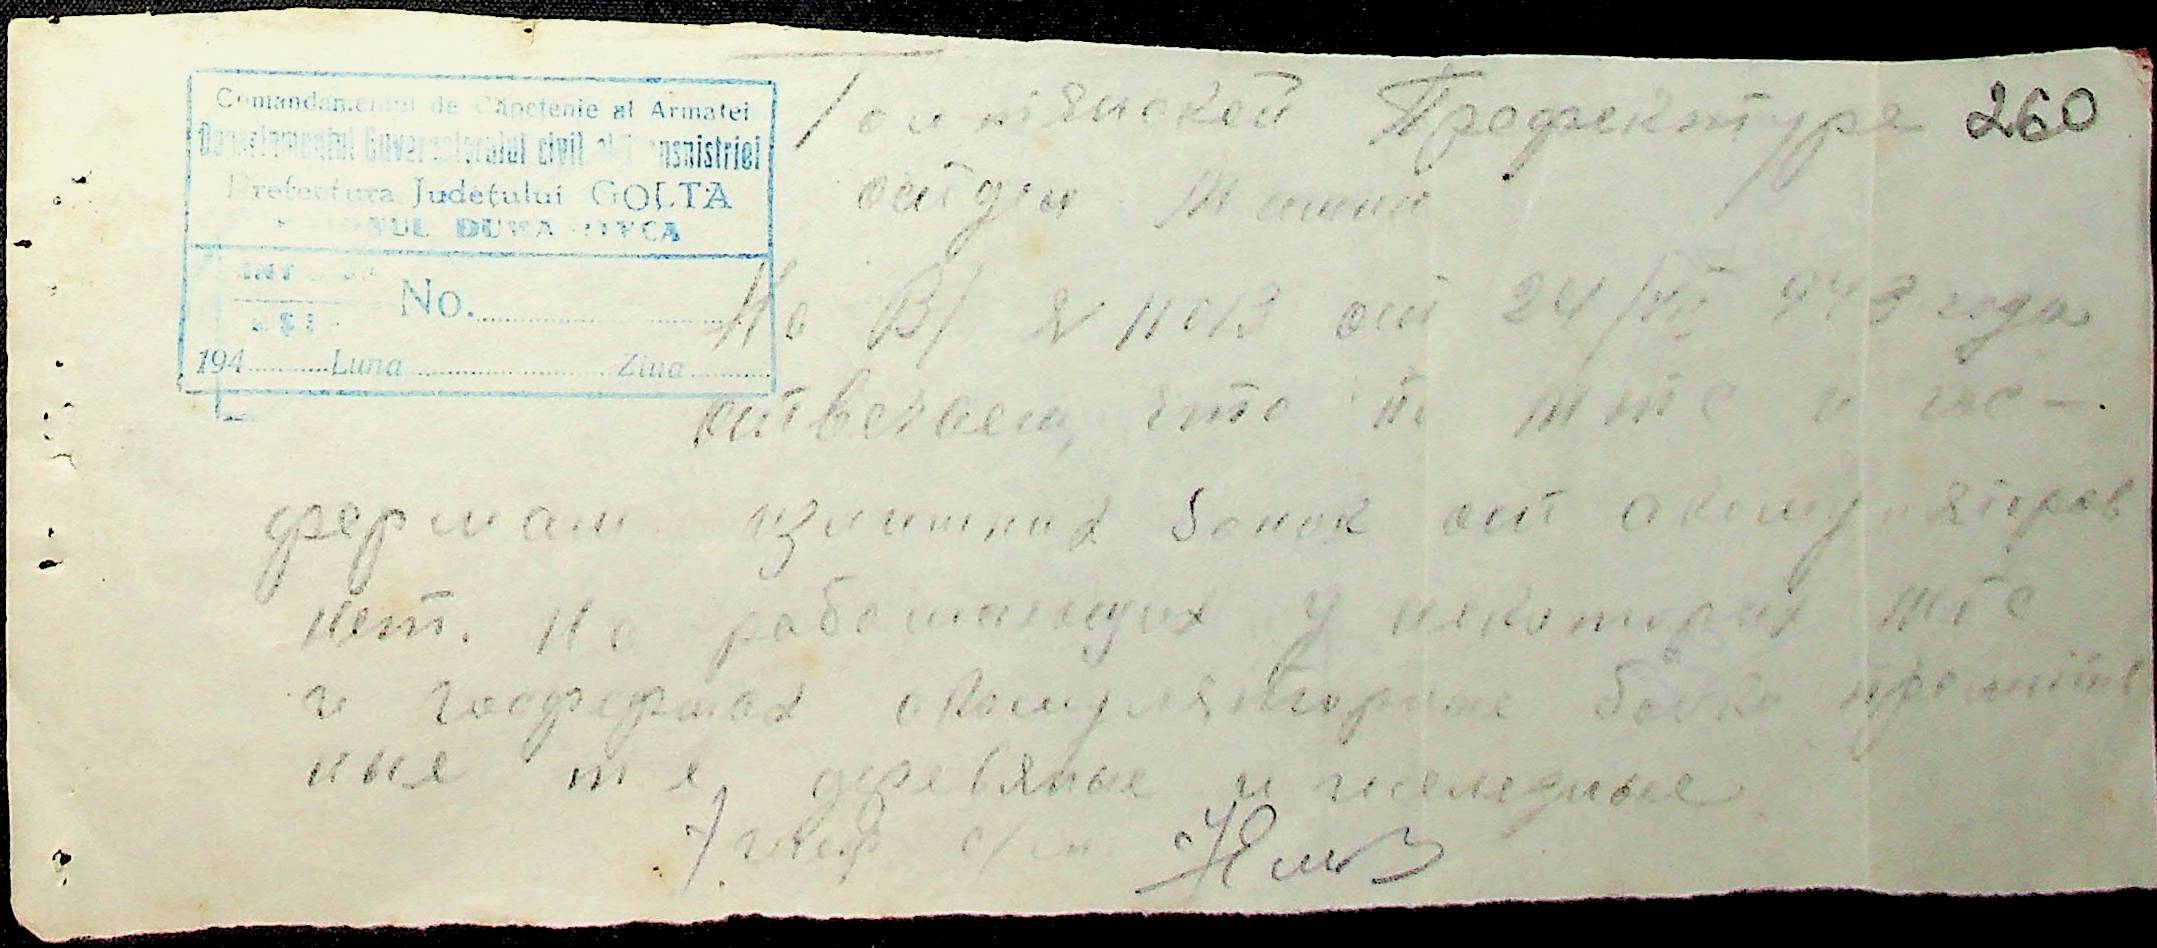 Comandamentul de Căpetenie al Armatei
Departamentul Guvernatorului civil al Transnistriei
Prefectura Județului GOLTA
No.
194 Luna Ziua
260
Голтянской Префектуре
отдел
На В/ № 11013 от 24/VII 943 года
отвечаем, что по МТС и гос-
фермам излишних банок от акомуляторов
нет. На работающих у некоторых МТС
и госфермах акомуляторные банки
ные деревяные и железные